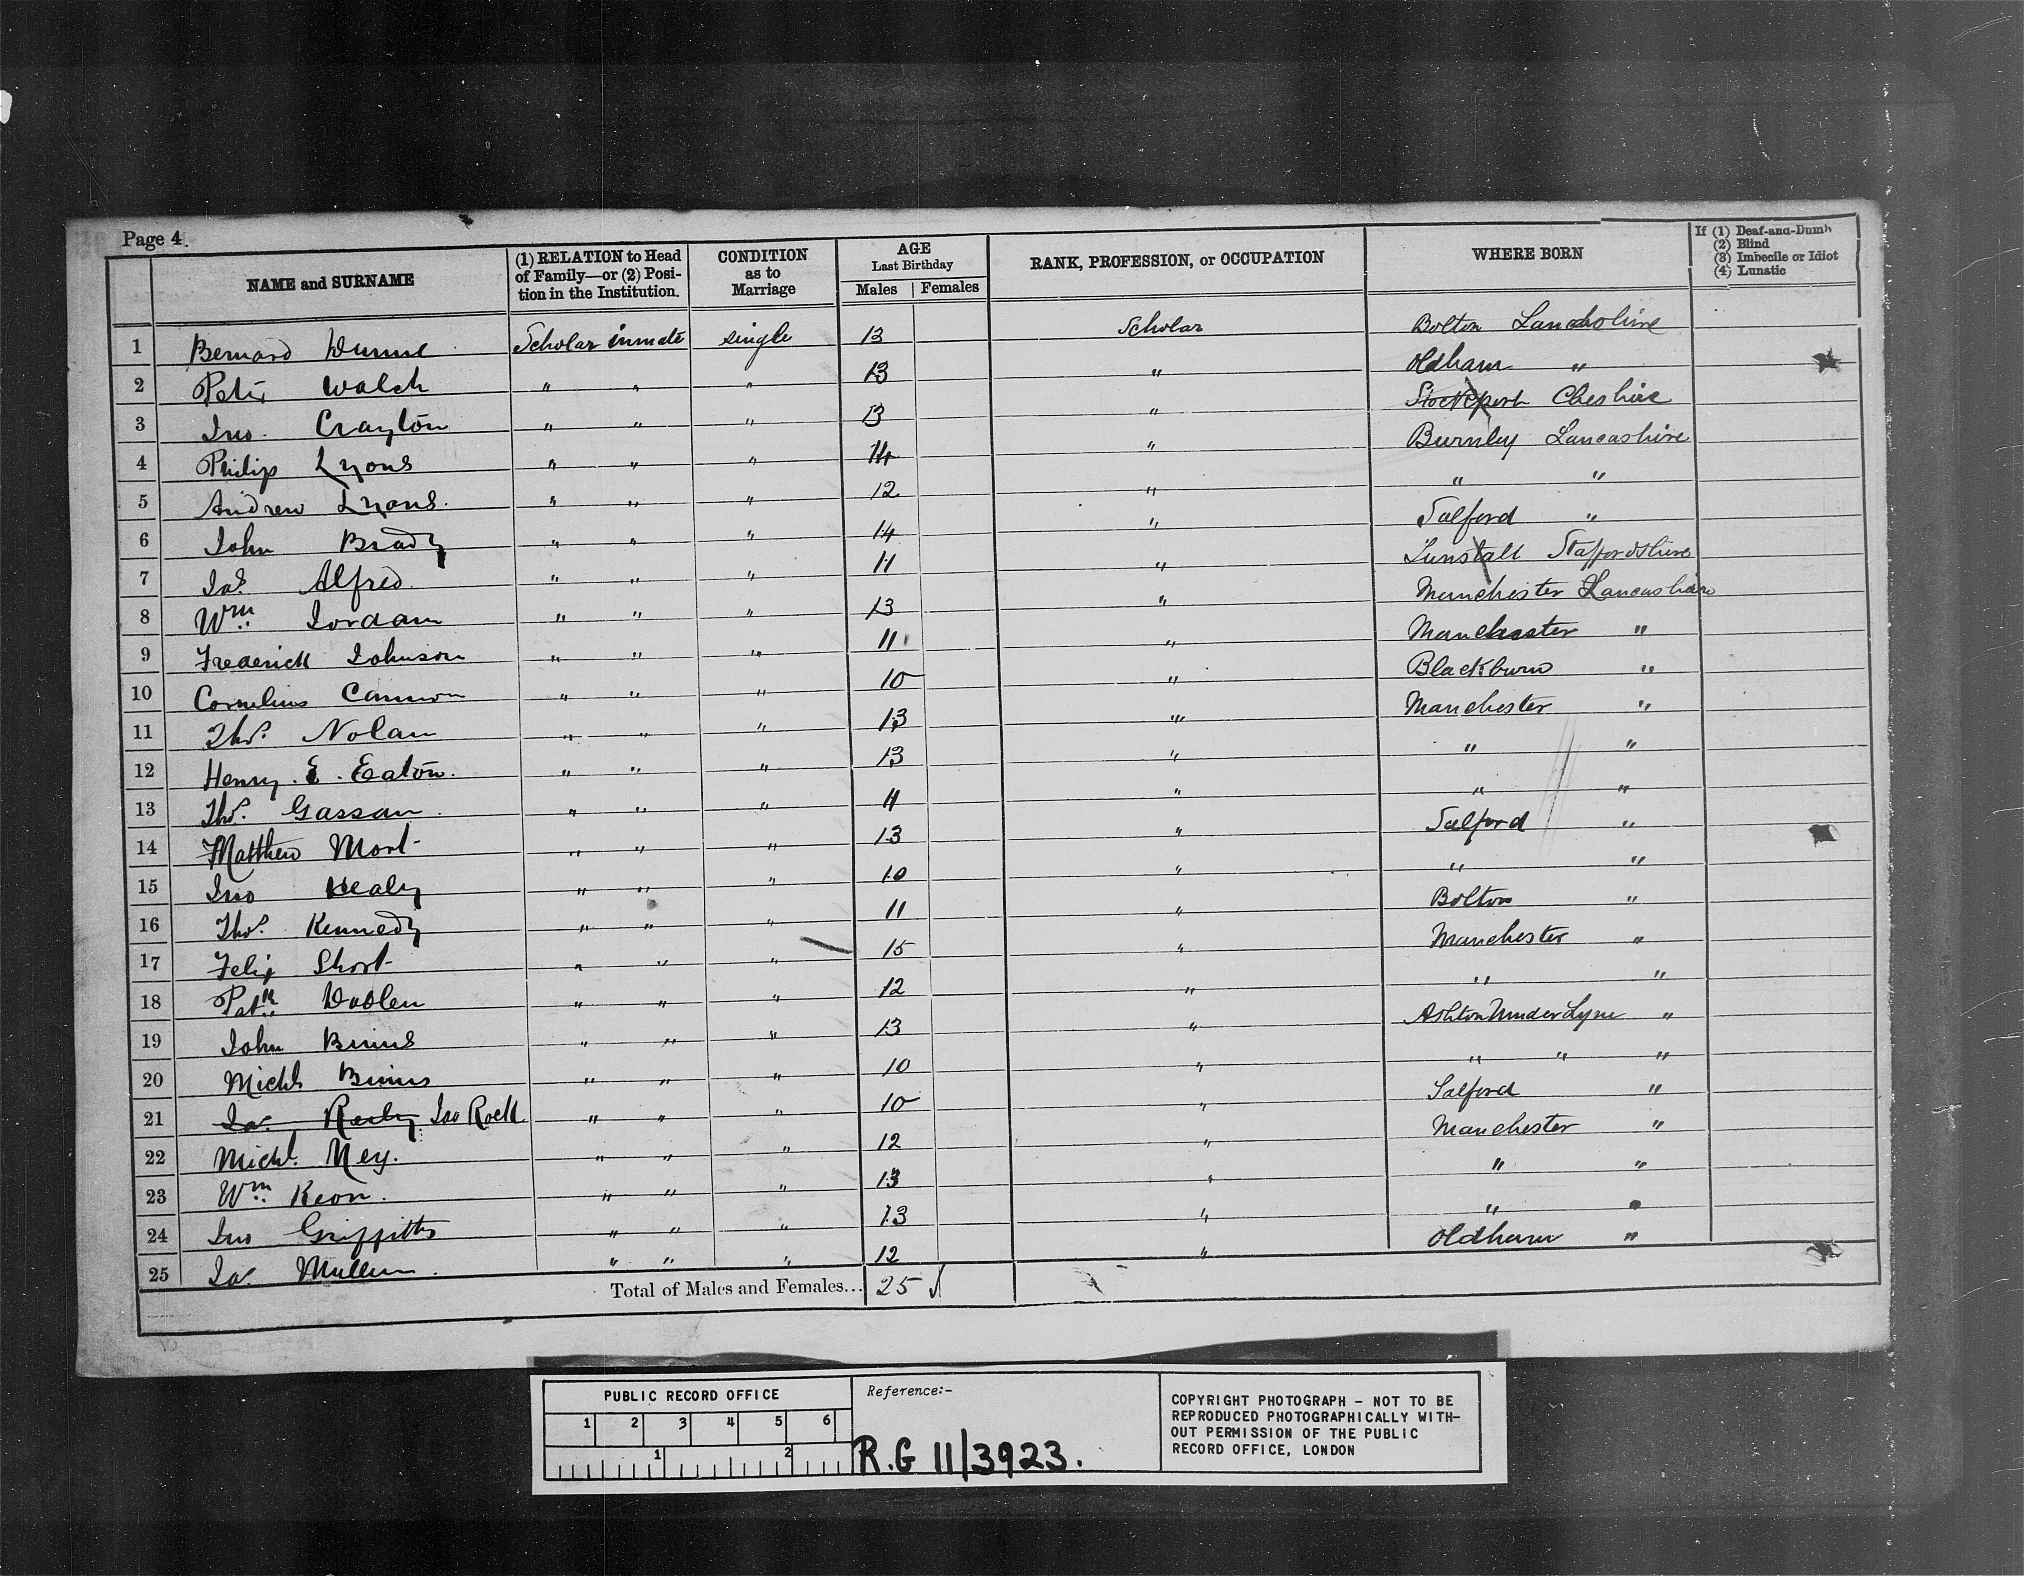 Page 4.
NAME and SURNAME
(1) RELATION to Head of Family—or (2) Position in the Institution.
CONDITION as to Marriage
AGE Last Birthday
Males Females
RANK, PROFESSION, or OCCUPATION
WHERE BORN
If (1) Deaf-and-Dumb
(2) Blind
(3) Imbecile or Idiot
(4) Lunatic
1 Bernard Dunne Scholar inmate single 13 Scholar Bolton Lancashire
2 Peter Walch " " " 13 " Oldham "
3 Jno. Crayton " " " 13 " Stockport Cheshire
4 Philip Lyons " " " 14 " Burnley Lancashire
5 Andrew Lyons. " " " 12 " " "
6 John Brady " " " 14 " Salford "
7 Jas. Alfred. " " " 11 " Tunstall Staffordshire
8 Wm. Jordan " " " 13 " Manchester Lancashire
9 Frederick Johnson " " " 11 " Manchester "
10 Cornelius Cannon " " " 10 " Blackburn "
11 Thos. Nolan " " " 13 " Manchester "
12 Henry. E. Eaton. " " " 13 " " "
13 Thos. Gassan. " " " 11 " " "
14 Matthew Mort " " " 13 " Salford "
15 Jno Healy " " " 10 " " "
16 Thos. Kennedy " " " 11 " Bolton "
17 Felix Short " " " 15 " Manchester "
18 Patk. " " " 12 " " "
19 John Binns " " " 13 " Ashton Under Lyne "
20 Michl Binns " " " 10 " " " "
21 Jas. Jno Rock " " " 10 " Salford "
22 Michl. Ney. " " " 12 " Manchester "
23 Wm. Keon. " " " 13 " " "
24 Jno Griffiths " " " 13 " " "
25 Jas. Mullen. " " " 12 " Oldham "
Total of Males and Females... 25
PUBLIC RECORD OFFICE
1 2 3 4 5 6
1 2
Reference:-
R.G 11/3923.
COPYRIGHT PHOTOGRAPH - NOT TO BE
REPRODUCED PHOTOGRAPHICALLY WITH-
OUT PERMISSION OF THE PUBLIC
RECORD OFFICE, LONDON